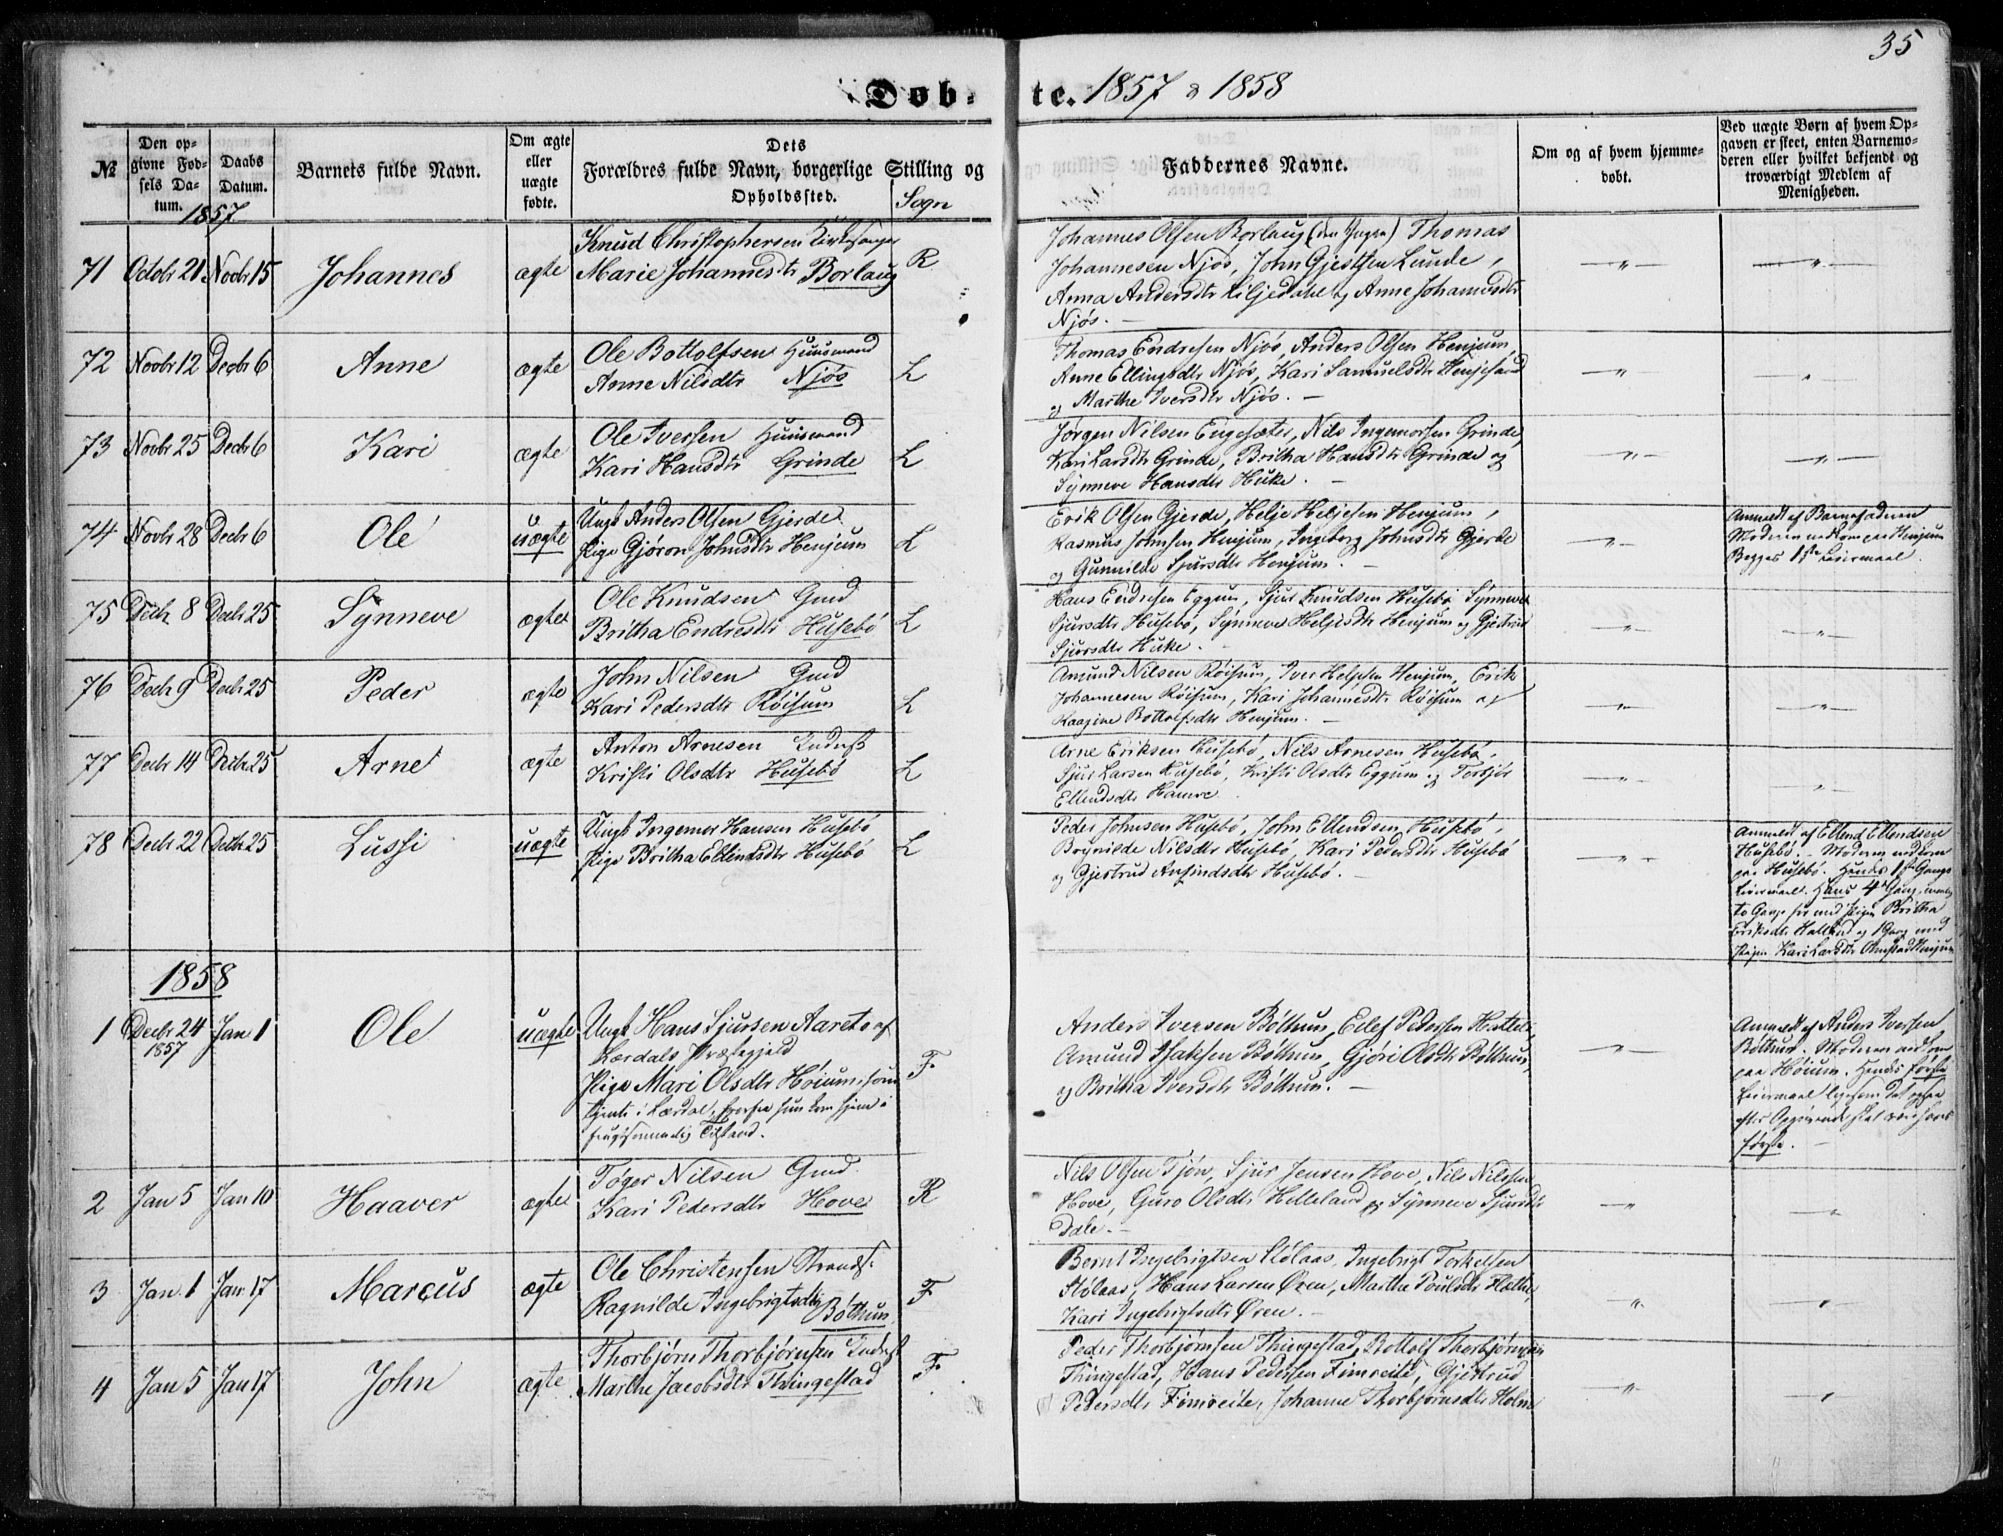 35
Døb-te. 1857 & 1858
№
Den op-
givne Fød-
sels Da-
tum.
Daabs
Datum.
Barnets fulde Navn.
Om ægte
eller
uægte
fødte.
Dets
Forældres fulde Navn, borgerlige Stilling og
Opholdssted.
Sogn
Faddernes Navne.
Om og af hvem hjemme-
døbt.
Ved uægte Børn af hvem Op-
gaven er skeet, enten Barnemo-
deren eller hvilket bekjendt og
troværdigt Medlem af
Menigheden.
1857
71 Octobr 21 Novbr 15 Johannes ægte
Knud Christophersen Kirkesanger
Marie Johannesdtr Borlaug R
Johannes Olsen Borlaug (den Yngre) Thomas
Johannesen Njøs, John Gjestsen Lunde,
Anna Andersdtr Liljedahl og Anne Johannesdtr
Njøs. —
72 Novbr 12 Decbr 6 Anne ægte
Ole Bottolfsen Huusmand
Anne Nilsdtr Njøs L
Thomas Endresen Njøs, Anders Olsen Henjum,
Anne Ellingsdtr Njøs, Kari Samuelsdtr
og Marthe Iversdtr Njøs. —
73 Novbr 25 Decbr 6 Kari ægte
Ole Iversen Huusmand
Kari Hansdtr Grinde L
Jørgen Nilsen Engesæter, Nils Ingemorsen Grinde,
Kari Larsdtr Grinde, Britha Hansdtr Grinde og
Synneve Hansdtr Huke. —
74 Novbr 28 Decbr 6 Ole uægte
Ungk Anders Olsen Gjerde
Pige Gjøron Johnsdtr Henjum L
Erik Olsen Gjerde, Helje Heljesen Henjum,
Rasmus Johnsen Henjum, Ingeborg Johnsdtr Gjerde
og Gunnilde Sjursdtr Henjum. —
Anmeldt af Barnefaderen
Moderen nedkom paa Henjum
Begges 1ste Leiermaal.
75 Decbr 8 Decbr 25 Synneve ægte
Ole Knudsen Gmd
Britha Endresdtr Husebø L
Hans Endresen Eggum, Sjur Knudsen Husebø Synneve
Sjursdtr Husebø, Synneve Heljesdtr Henjum og Gjertrud
Sjursdtr Huke. —
76 Decbr 9 Decbr 25 Peder ægte
John Nilsen Gmd
Kari Pedersdtr Røisum L
Amund Nilsen Røisum, Iver Heljesen Henjum, Erik
Johannesen Røisum, Kari Johannesdtr Røisum og
Bottolfsdtr Henjum. —
77 Decbr 14 Decbr 25 Arne ægte
Anton Arnesen Inderst
Kristi Olsdtr Husebø L
Arne Eriksen Husebø, Nils Arnesen Husebø,
Sjur Larsen Husebø, Kristi Olsdtr Eggum og Torbjør
Ellendsdtr Hamre
78 Decbr 22 Decbr 25 Lussi uægte
Ungk Ingemor Hansen Husebø
Pige Britha Ellendsdtr Husebø L
Peder Johnsen Husebø, John Ellendsen Husebø,
Brynilde Nilsdtr Husebø, Kari Pedersdtr Husebø
og Gjertrud Anfindsdtr Husebø. —
Anmeldt af Ellend Ellendsen
Husebø. — Moderen nedkom
paa Husebø. Hendes 1ste Gangs
Leiermaal. Hans 4de Gang,
to Gange før med Pigen Britha
Eriksdtr og 1 Gang med
Pigen Kari Larsdtr Henjum
1858
1 Decbr 24
1857
Jan 1 Ole uægte
Ungk Hans Sjursen Aareto af
Lærdals Præstegjeld
Pige Mari Olsdtr Høium, som
tjente i Lærdal, hvorfra hun kom hjem i
frugtsommelig Tilstand. F
Anders Iversen Bøthun, Eilef Pedersen
Amund Isaksen Bøthun, Gjøri Olsdtr Bøthun,
og Britha Iversdtr Bøthun. —
Anmeldt af Anders Iversen
Bøthun. Moderen nedkom
paa Høium. Hendes første
Leiermaal ligesom det ogsaa
efter Opgivende skal være hans
første. —
2 Jan 5 Jan 10 Haaver ægte
Tøger Nilsen Gmd.
Kari Pedersdtr Hove R
Nils Olsen Tjøn, Sjur Jensen Hove, Nils Nilsen
Hove, Guro Olsdtr Helleland og Synneve Sjursdtr
Dale. —
3 Jan. 1 Jan 17 Marcus ægte
Ole Christensen Strands.
Ragnilde Ingebrigtsdtr Bøthun F
Bernt Ingebrigtsen Ingebrigt Torkelsen
Hans Larsen Øren, Marthe Poulsdtr
Kari Ingebrigtsdtr Øren. —
4 Jan 5 Jan 17 John ægte
Thorbjørn Thorbjørnsen Inderst
Marthe Jacobsdtr Thingestad F
Peder Thorbjørnsen Thingestad, Bottolf Thorbjørnsen
Thingestad, Hans Pedersen Fimreite, Gjertrud
Pedersdtr Fimreite, Johanne Thorbjørnsdtr Holm